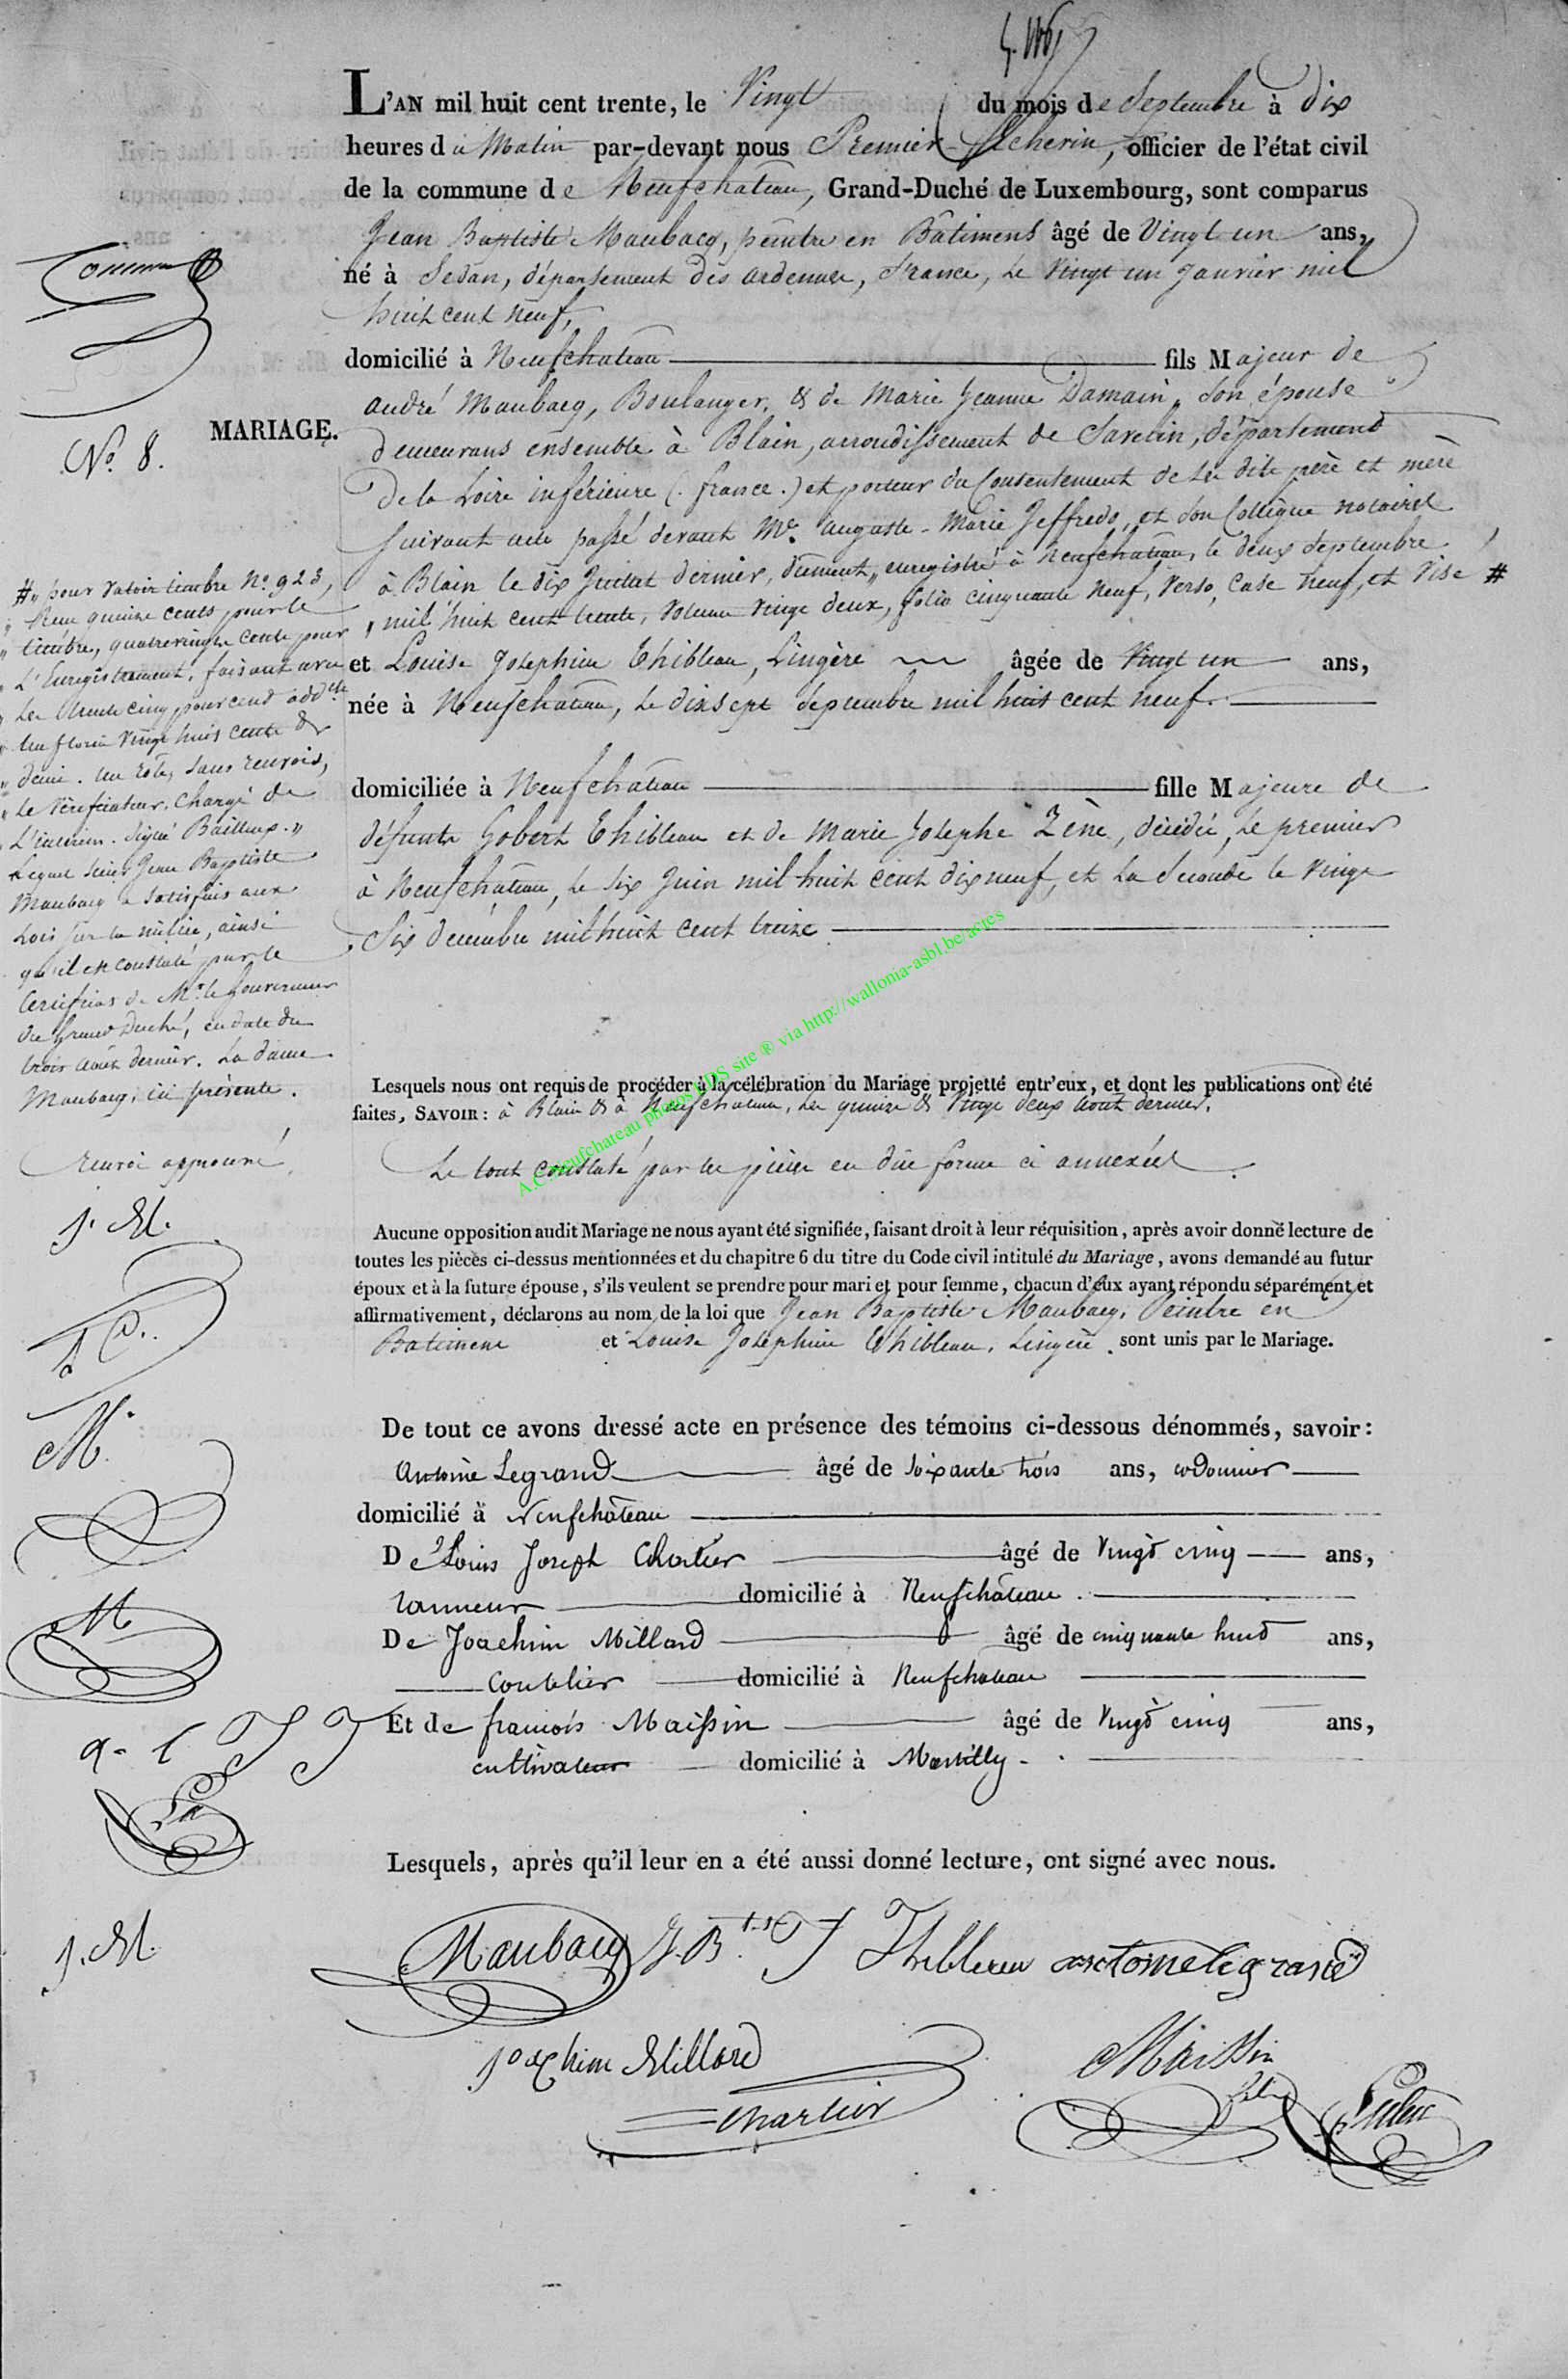 L'AN mil huit cent trente, le Vingt du mois de Septembre à dix
heures du Matin par-devant nous Premier Echevin, officier de l'état civil
de la commune de Neufchateau, Grand-Duché de Luxembourg, sont comparus
Jean Baptiste Maubacq, peintre en Bâtimens âgé de Vingt un ans,
né à Sedan, département des ardennes, France, le Vingt un janvier mil
huit cent neuf,
domicilié à Neufchateau fils Majeur de
andré Maubacq, Boulanger, & de Marie Jeanne Damain, son épouse
demeurans ensemble à Blain, arrondissement de Savelin, département
De la Loire inférieure (france.) et porteur du Consentement de ses dits père et mère
suivant acte passé devant Me. auguste-Marie Jeffredo, et son Collègue notaires
à Blain le dix Juillet dernier, dûment enregistré à Neufchateau, le deux septembre
mil huit cent trente, volume vingt deux, folio cinquante neuf, verso, case neuf, et visé #
MARIAGE.
No. 8.
# " pour valoir timbre No. 923,
" Reçu quinze cents pour le
" timbre, quatrevingts cents pour
" L'Enregistrement, faisant avec
" Les trente cinq pour cent addels
" Un florin vingt huit cents &
" demi. Un rôle, sans renvois,
" Le Vérificateur, Chargé de
" L'interim. Signé Bailleux. "
Lequel sieur Jean Baptiste
Maubacq a satisfais aux
Lois sur la milice, ainsi
qu'il est constaté par le
Certificat de Mr. le Gouverneur
du Grand Duché, en date du
trois août dernier. La dame
Maubacq, ici présente.
renvoi approuvé
J. M.
et Louise Josephine Thibleau, Lingère âgée de Vingt un ans,
née à Neufchateau, le dixsept septembre mil huit cent neuf.
domiciliée à Neufchateau fille Majeure de
défunts Gobert Thibleau et de Marie Josephe Zène, décédés, le premier
à Neufchâteau, le six Juin mil huit cent dixneuf, et la seconde le vingt
Six décembre mil huit cent treize
Lesquels nous ont requis de procéder à la célébration du Mariage projetté entr'eux, et dont les publications ont été
faites, SAVOIR : à Blain & à Neufchateau, les quinze & vingt deux août dernier.
Le tout constaté par les pièces en due forme ci annexées.
Aucune opposition audit Mariage ne nous ayant été signifiée, faisant droit à leur réquisition, après avoir donné lecture de
toutes les pièces ci-dessus mentionnées et du chapitre 6 du titre du Code civil intitulé du Mariage, avons demandé au futur
époux et à la future épouse, s'ils veulent se prendre pour mari et pour femme, chacun d'eux ayant répondu séparément et
affirmativement, déclarons au nom de la loi que Jean Baptiste Maubacq, Peintre en
Batimens et Louise Josephine Thibleau, Lingère. sont unis par le Mariage.
De tout ce avons dressé acte en présence des témoins ci-dessous dénommés, savoir :
Antoine Legrand âgé de soixante trois ans, cordonnier
domicilié à Neufchâteau
De Louis Joseph Chartier âgé de vingt cinq ans,
tanneur domicilié à Neufchâteau.
De Joachim Millard âgé de cinquante huit ans,
coutelier domicilié à Neufchateau
Et de françois Maissin âgé de vingt cinq ans,
cultivateur domicilié à Massilly
Lesquels, après qu'il leur en a été aussi donné lecture, ont signé avec nous.
J. M.
Maubacq J. Bte T Thibleau antoine legrand
Joachim Millard Maissin
Chartier
A.C. Neufchateau photos EDS site ® via http://wallonia-asbl.be/actes